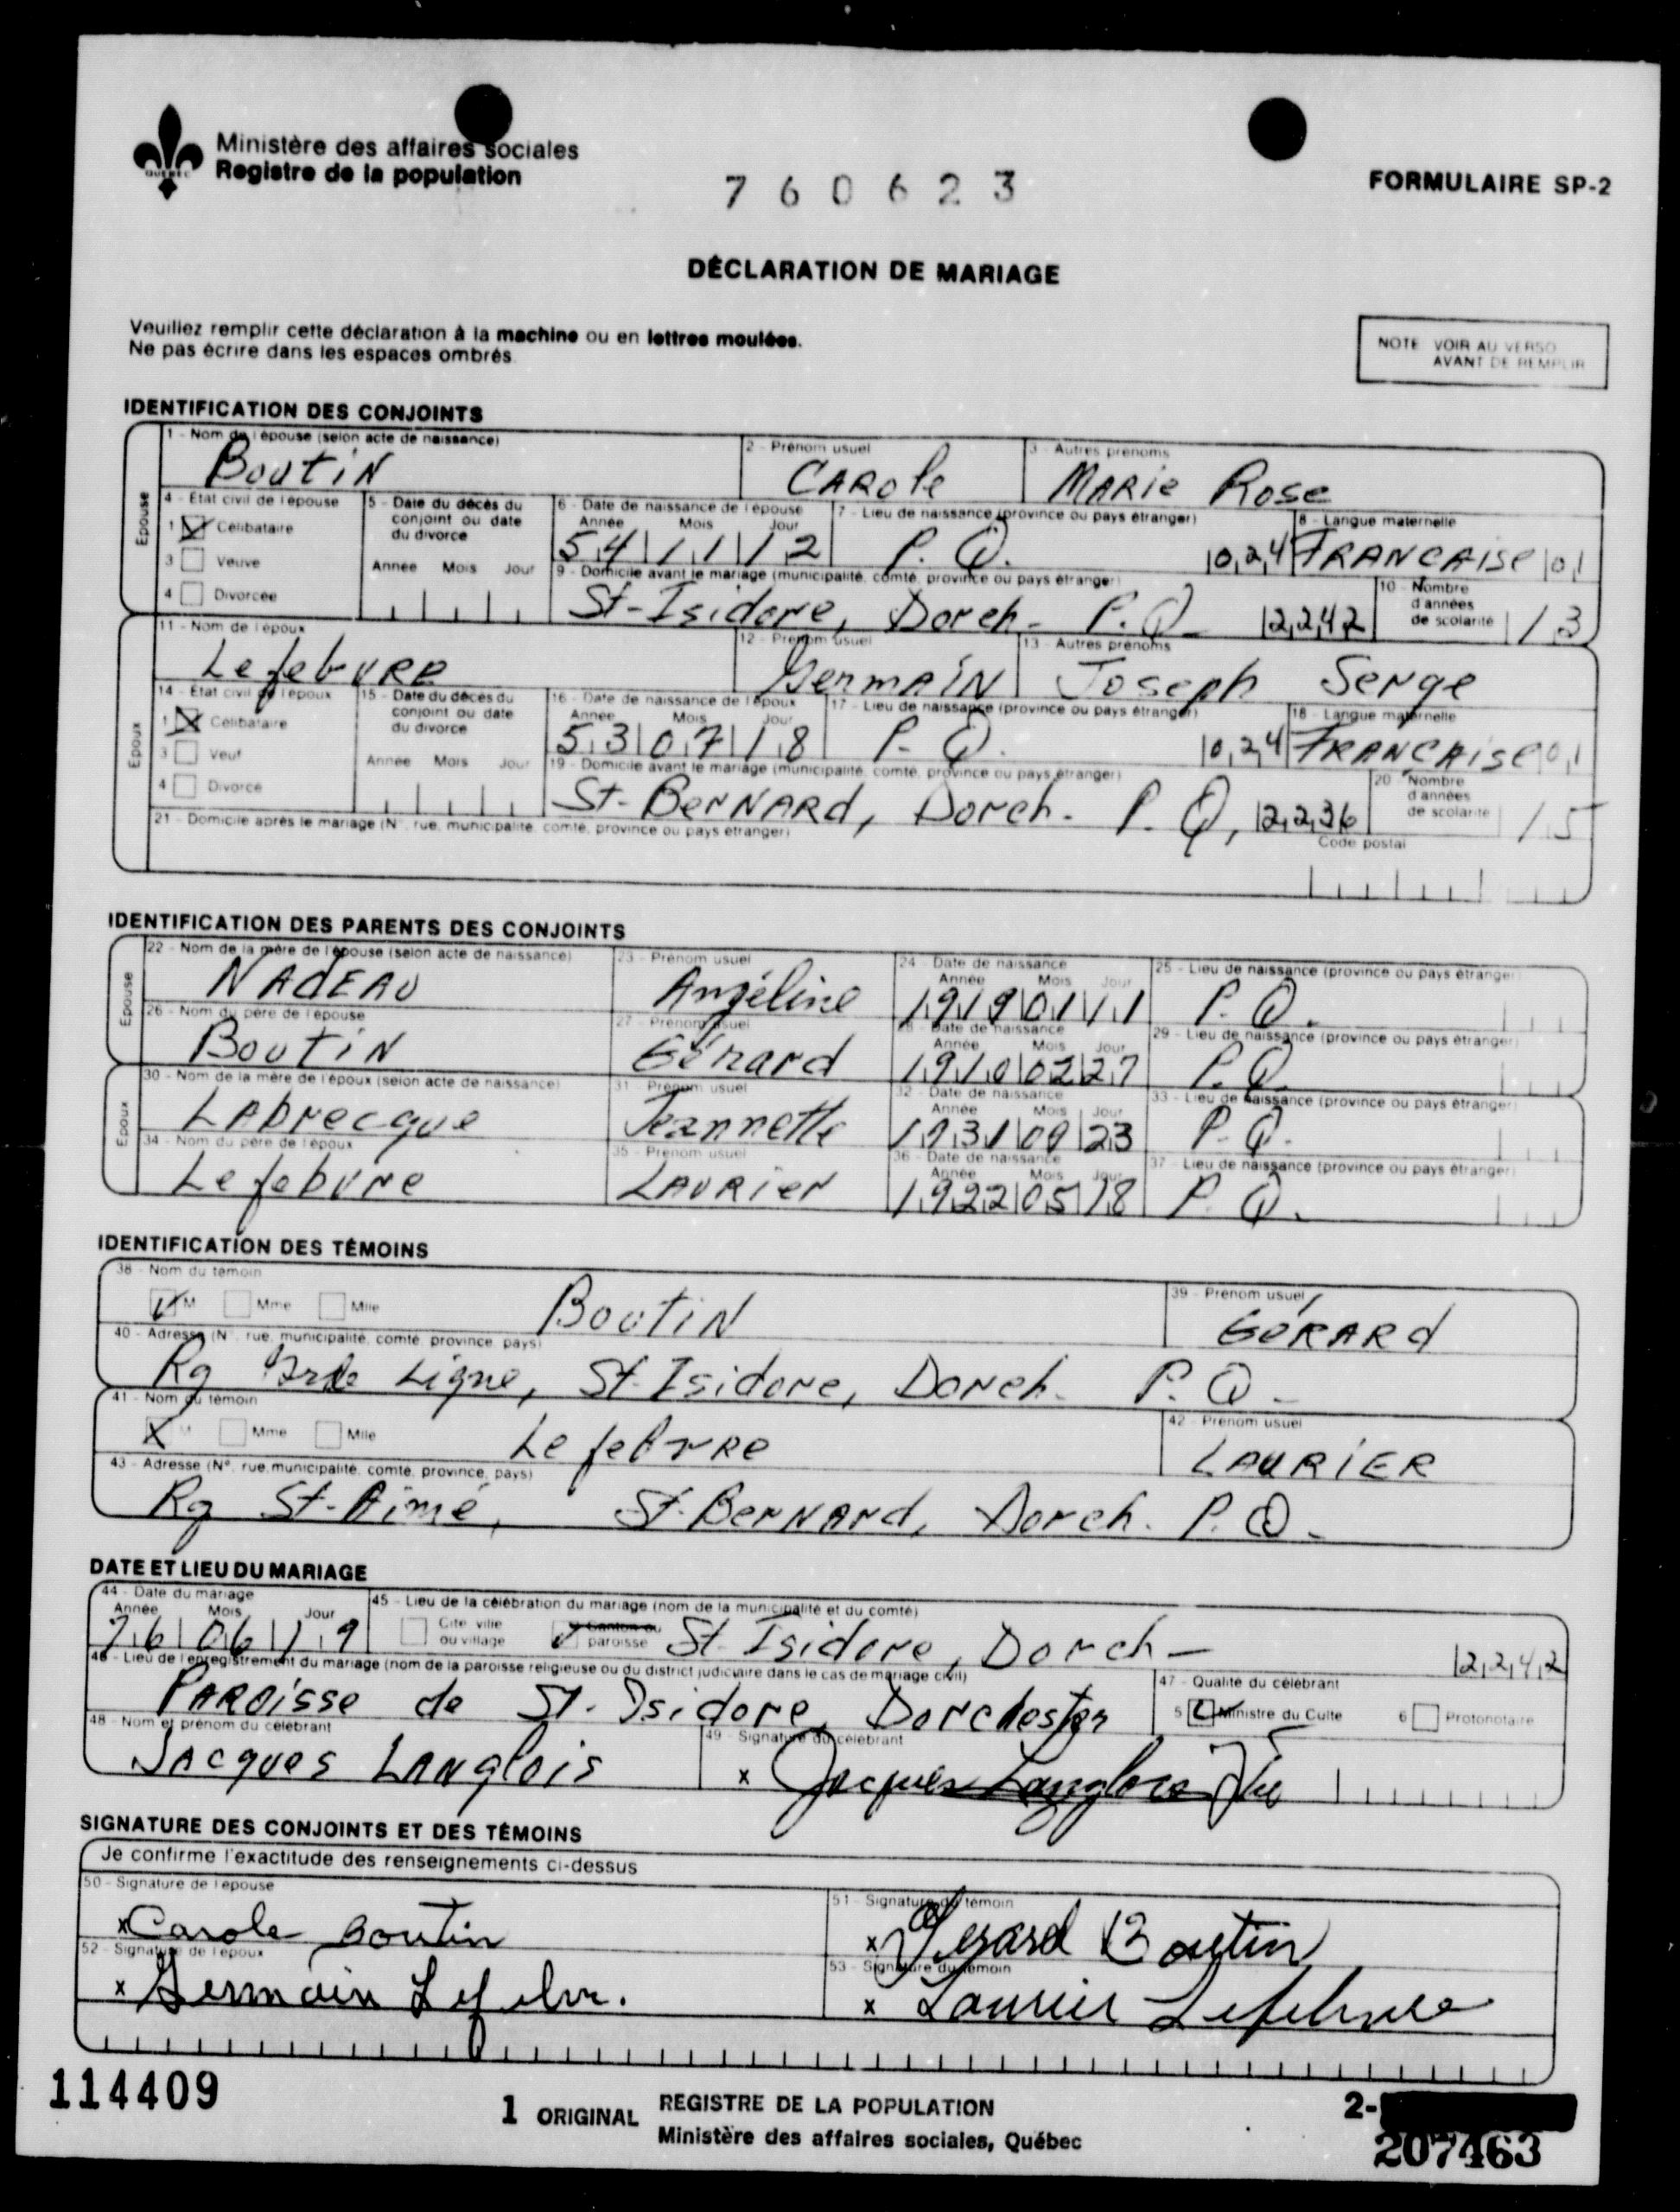 QUÉBEC
Ministère des affaires sociales
Registre de la population
760623
FORMULAIRE SP-2
DÉCLARATION DE MARIAGE
Veuillez remplir cette déclaration à la machine ou en lettres moulées.
Ne pas écrire dans les espaces ombrés
NOTE VOIR AU VERSO
AVANT DE REMPLIR
IDENTIFICATION DES CONJOINTS
Épouse
1 - Nom de l'épouse (selon acte de naissance) 2 - Prénom usuel 3 - Autres prénoms
Boutin CAROle MARie Rose
4 - État civil de l'épouse 5 - Date du décès du conjoint ou date du divorce 6 - Date de naissance de l'épouse 7 - Lieu de naissance (province ou pays étranger) 8 - Langue maternelle
1 Célibataire Année Mois Jour
54 11 12 P.Q. 024 FRANCAise 01
3 Veuve Année Mois Jour 9 - Domicile avant le mariage (municipalité, comté, province ou pays étranger) 10 - Nombre d'années de scolarité
4 Divorcée St-Isidore, Dorch- P.Q- 2242 13
Époux
11 - Nom de l'époux 12 - Prénom usuel 13 - Autres prénoms
LefebvRe GermAiN Joseph Serge
14 - État civil de l'époux 15 - Date du décès du conjoint ou date du divorce 16 - Date de naissance de l'époux 17 - Lieu de naissance (province ou pays étranger) 18 - Langue maternelle
1 Célibataire Année Mois Jour
53 07 18 P.Q. 024 FRANCAise 01
3 Veuf Année Mois Jour 19 - Domicile avant le mariage (municipalité, comté, province ou pays étranger) 20 - Nombre d'années de scolarité
4 Divorcé St-BerNARd, Dorch. P.Q, 2236 15
21 - Domicile après le mariage (N°, rue, municipalité, comté, province ou pays étranger) Code postal
IDENTIFICATION DES PARENTS DES CONJOINTS
Épouse
22 - Nom de la mère de l'épouse (selon acte de naissance) 23 - Prénom usuel 24 - Date de naissance 25 - Lieu de naissance (province ou pays étranger)
Année Mois Jour
NAdEAU Angéline 1919 01 11 P.Q.
26 - Nom du père de l'épouse 27 - Prénom usuel 28 - Date de naissance 29 - Lieu de naissance (province ou pays étranger)
Année Mois Jour
Boutin Gérard 1910 02 27 P.Q.
Époux
30 - Nom de la mère de l'époux (selon acte de naissance) 31 - Prénom usuel 32 - Date de naissance 33 - Lieu de naissance (province ou pays étranger)
Année Mois Jour
LAbrecque Jeannette 1931 09 23 P.Q.
34 - Nom du père de l'époux 35 - Prénom usuel 36 - Date de naissance 37 - Lieu de naissance (province ou pays étranger)
Année Mois Jour
Lefebvre LAURier 1922 05 18 P.Q.
IDENTIFICATION DES TÉMOINS
38 - Nom du témoin 39 - Prénom usuel
M Mme Mlle Boutin GéRARd
40 - Adresse (N°, rue, municipalité, comté, province, pays)
Rg Ligne, St-Isidore, Dorch. P.Q-
41 - Nom du témoin 42 - Prénom usuel
M Mme Mlle LefebvRe LAURiER
43 - Adresse (N°, rue, municipalité, comté, province, pays)
Rg St-Aimé, St-BerNARd, Dorch. P.Q-
DATE ET LIEU DU MARIAGE
44 - Date du mariage 45 - Lieu de la célébration du mariage (nom de la municipalité et du comté)
Année Mois Jour Cité ville ou village Canton ou paroisse
76 06 19 St Isidore, Dorch- 2242
46 - Lieu de l'enregistrement du mariage (nom de la paroisse religieuse ou du district judiciaire dans le cas de mariage civil) 47 - Qualité du célébrant
PARoisse de St. Isidore, Dorchester 5 Ministre du Culte 6 Protonotaire
48 - Nom et prénom du célébrant 49 - Signature du célébrant
JAcques LANglois x Jacques Langlois Ptre
SIGNATURE DES CONJOINTS ET DES TÉMOINS
Je confirme l'exactitude des renseignements ci-dessus
50 - Signature de l'épouse 51 - Signature du témoin
x Carole Boutin x Gerard Boutin
52 - Signature de l'époux 53 - Signature du témoin
x Germain Lefebvre x Laurier Lefebvre
114409
1 ORIGINAL REGISTRE DE LA POPULATION
Ministère des affaires sociales, Québec
2-
207463